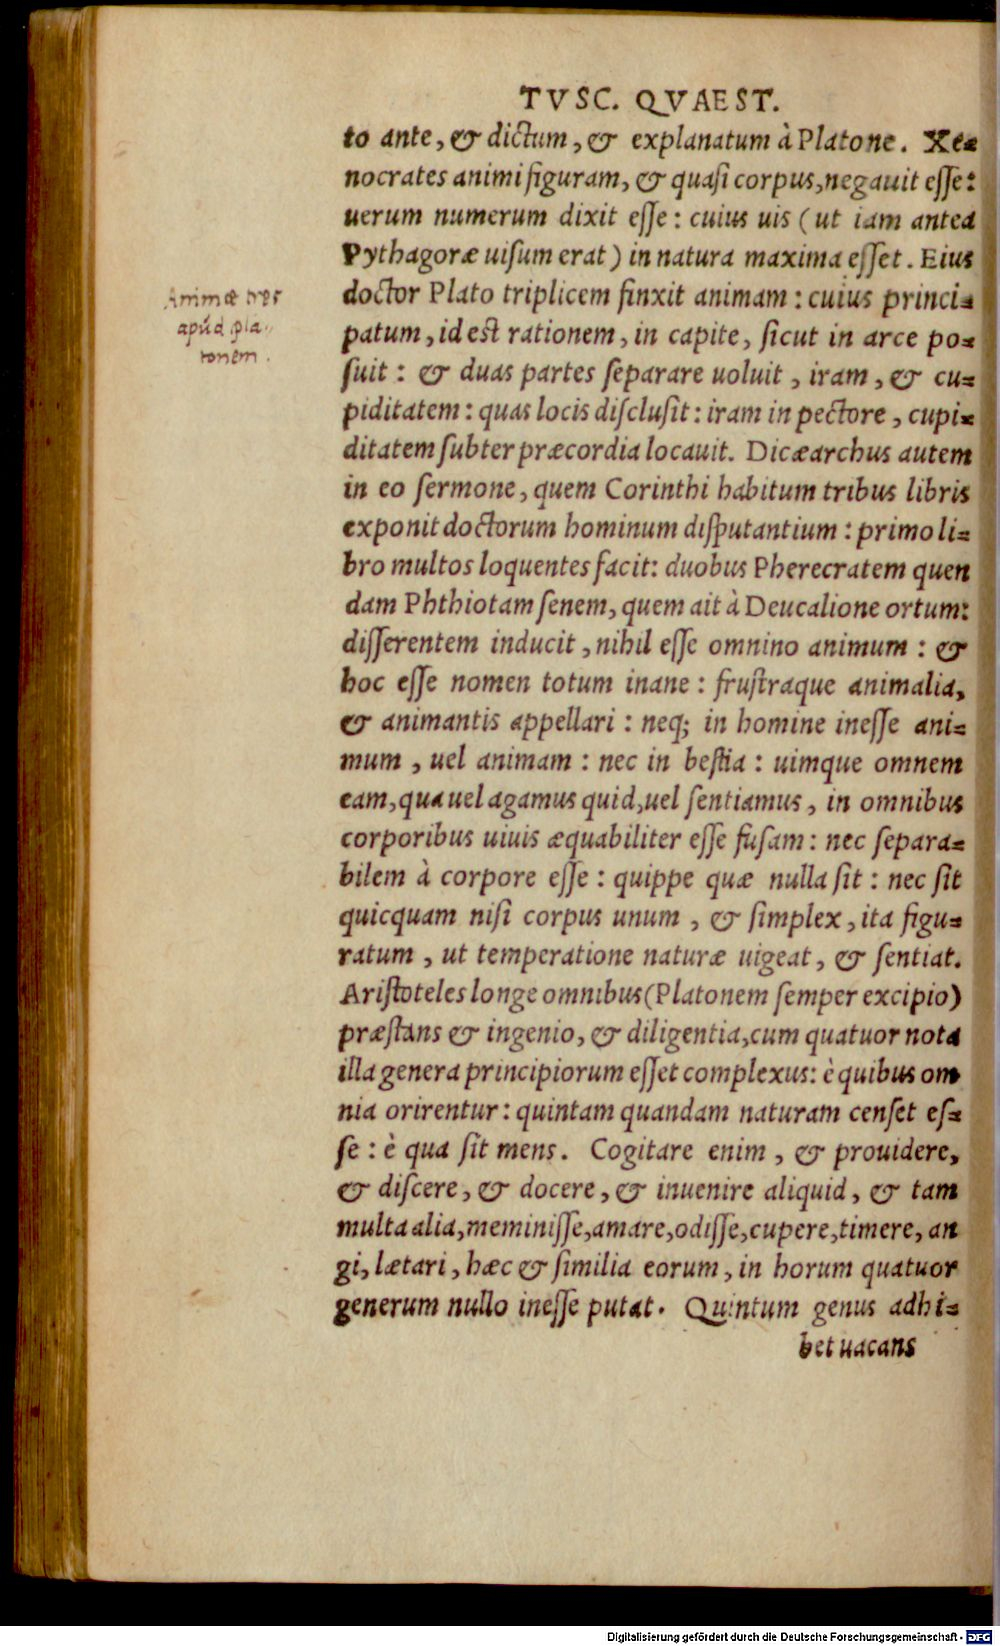 TVSC. QVAEST.
to ante, & dictum, & explanatum à Platone. Xe=
nocrates animi figuram, & quaſi corpus, negauit eſſe:
uerum numerum dixit eſſe: cuius uis (ut iam antea
Pythagoræ uiſum erat) in natura maxima eſſet. Eius
doctor Plato triplicem finxit animam: cuius princi=
patum, id est rationem, in capite, ſicut in arce po=
ſuit: & duas partes ſeparare uoluit, iram, & cu=
piditatem: quas locis diſcluſit: iram in pectore, cupi=
ditatem ſubter præcordia locauit. Dicæarchus autem
in eo ſermone, quem Corinthi habitum tribus libris
exponit doctorum hominum diſputantium: primo li=
bro multos loquentes facit: duobus Pherecratem quen
dam Phthiotam ſenem, quem ait à Deucalione ortum:
diſſerentem inducit, nihil eſſe omnino animum: &
hoc eſſe nomen totum inane: fruſtraque animalia,
& animantis appellari: neq; in homine ineſſe ani=
mum, uel animam: nec in beſtia: uimque omnem
eam, qua uel agamus quid, uel ſentiamus, in omnibus
corporibus uiuis æquabiliter eſſe fuſam: nec ſepara=
bilem à corpore eſſe: quippe quæ nulla ſit: nec ſit
quicquam niſi corpus unum, & ſimplex, ita figu=
ratum, ut temperatione naturæ uigeat, & ſentiat.
Ariſtoteles longe omnibus (Platonem ſemper excipio)
præſtans & ingenio, & diligentia, cum quatuor nota
illa genera principiorum eſſet complexus: è quibus om
nia orirentur: quintam quandam naturam cenſet eſ=
ſe: è qua ſit mens. Cogitare enim, & prouidere,
& diſcere, & docere, & inuenire aliquid, & tam
multa alia, meminiſſe, amare, odiſſe, cupere, timere, an
gi, lætari, hæc & ſimilia eorum, in horum quatuor
generum nullo ineſſe putat. Quintum genus adhi=
bet uacans
Animæ tres
apud pla-
tonem.
Digitalisierung gefördert durch die Deutsche Forschungsgemeinschaft - DFG